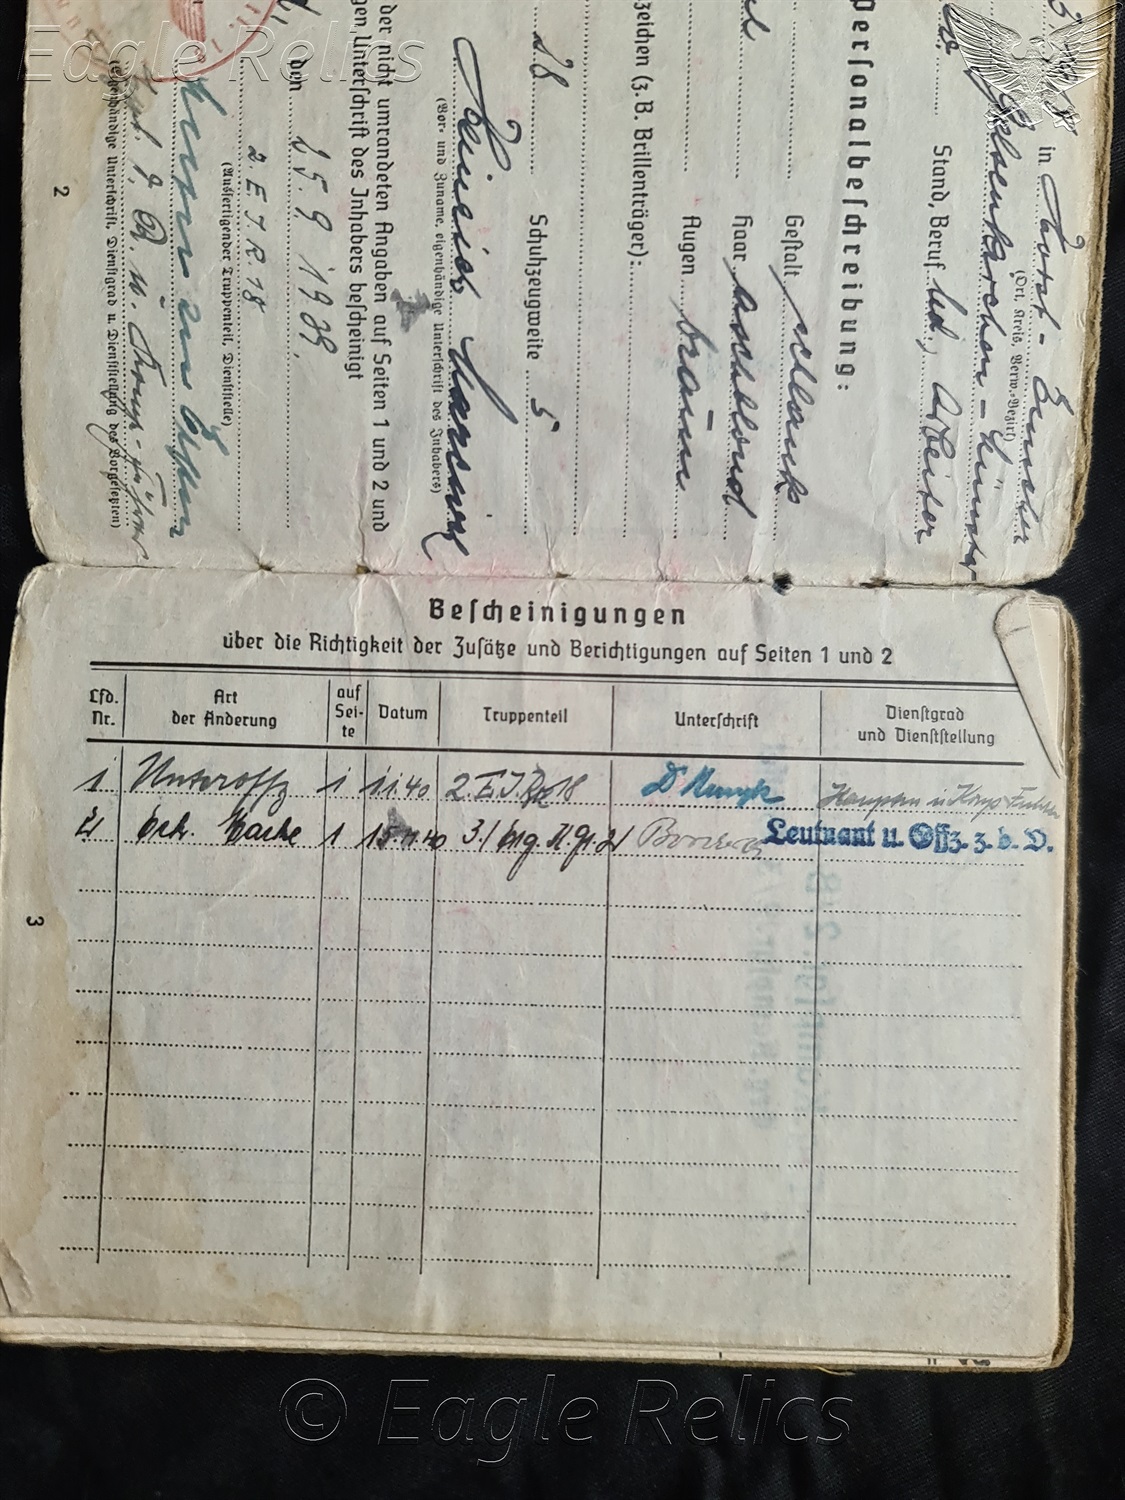 Eagle Relics
in Horst-Emscher
(Ort, Kreis, Verw.-Bezirk)
Gelsenkirchen-
Stand, Beruf led., Arbeiter
Personalbeschreibung:
Gestalt schlank
Haar
Augen braun
zeichen (z. B. Brillenträger):
28 Schuhzeugweite 5
Heinrich
(Vor- und Zuname, eigenhändige Unterschrift des Inhabers)
der nicht umrandeten Angaben auf Seiten 1 und 2 und
gen Unterschrift des Inhabers bescheinigt
den 25.9.1938.
2. E. I. R. 18
(Ausfertigender Truppenteil, Dienststelle)
(Eigenhändige Unterschrift, Dienstgrad u. Dienststellung des Vorgesetzten)
2
Bescheinigungen
über die Richtigkeit der Zusätze und Berichtigungen auf Seiten 1 und 2
Lfd. Nr. Art der Änderung auf Seite Datum Truppenteil Unterschrift Dienstgrad und Dienststellung
1 Unteroffz 1 1.1.40 2. E. I. R. 18 Hauptm u. Komp Führer
2 Erk. Marke 1 15.11.40 Leutnant u. Offz. z. b. V.
3
© Eagle Relics